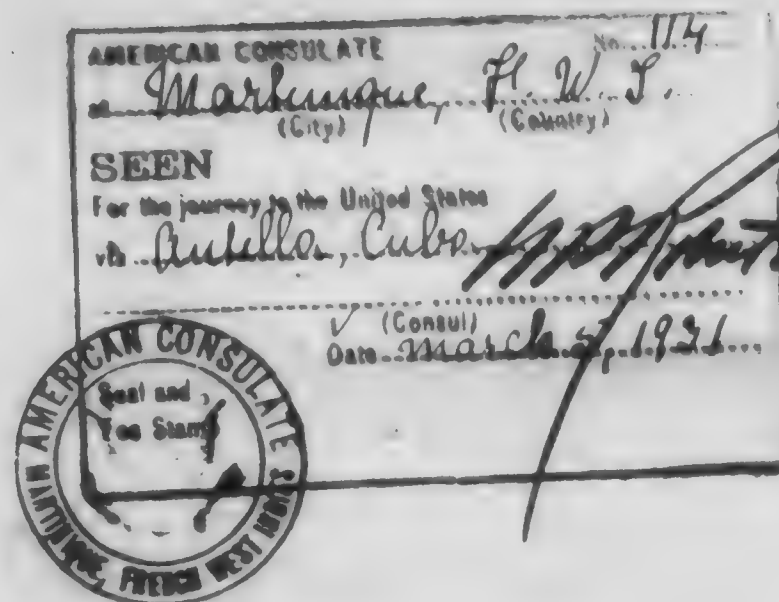 AMERICAN CONSULATE No. 114
at Martinique, F. W. I.
(City) (Country)
SEEN
For the journey to the United States
via Antilla, Cuba
(Consul)
Date March 5, 1921
Seal and
Fee Stamp
AMERICAN CONSULATE
MARTINIQUE, FRENCH WEST INDIES